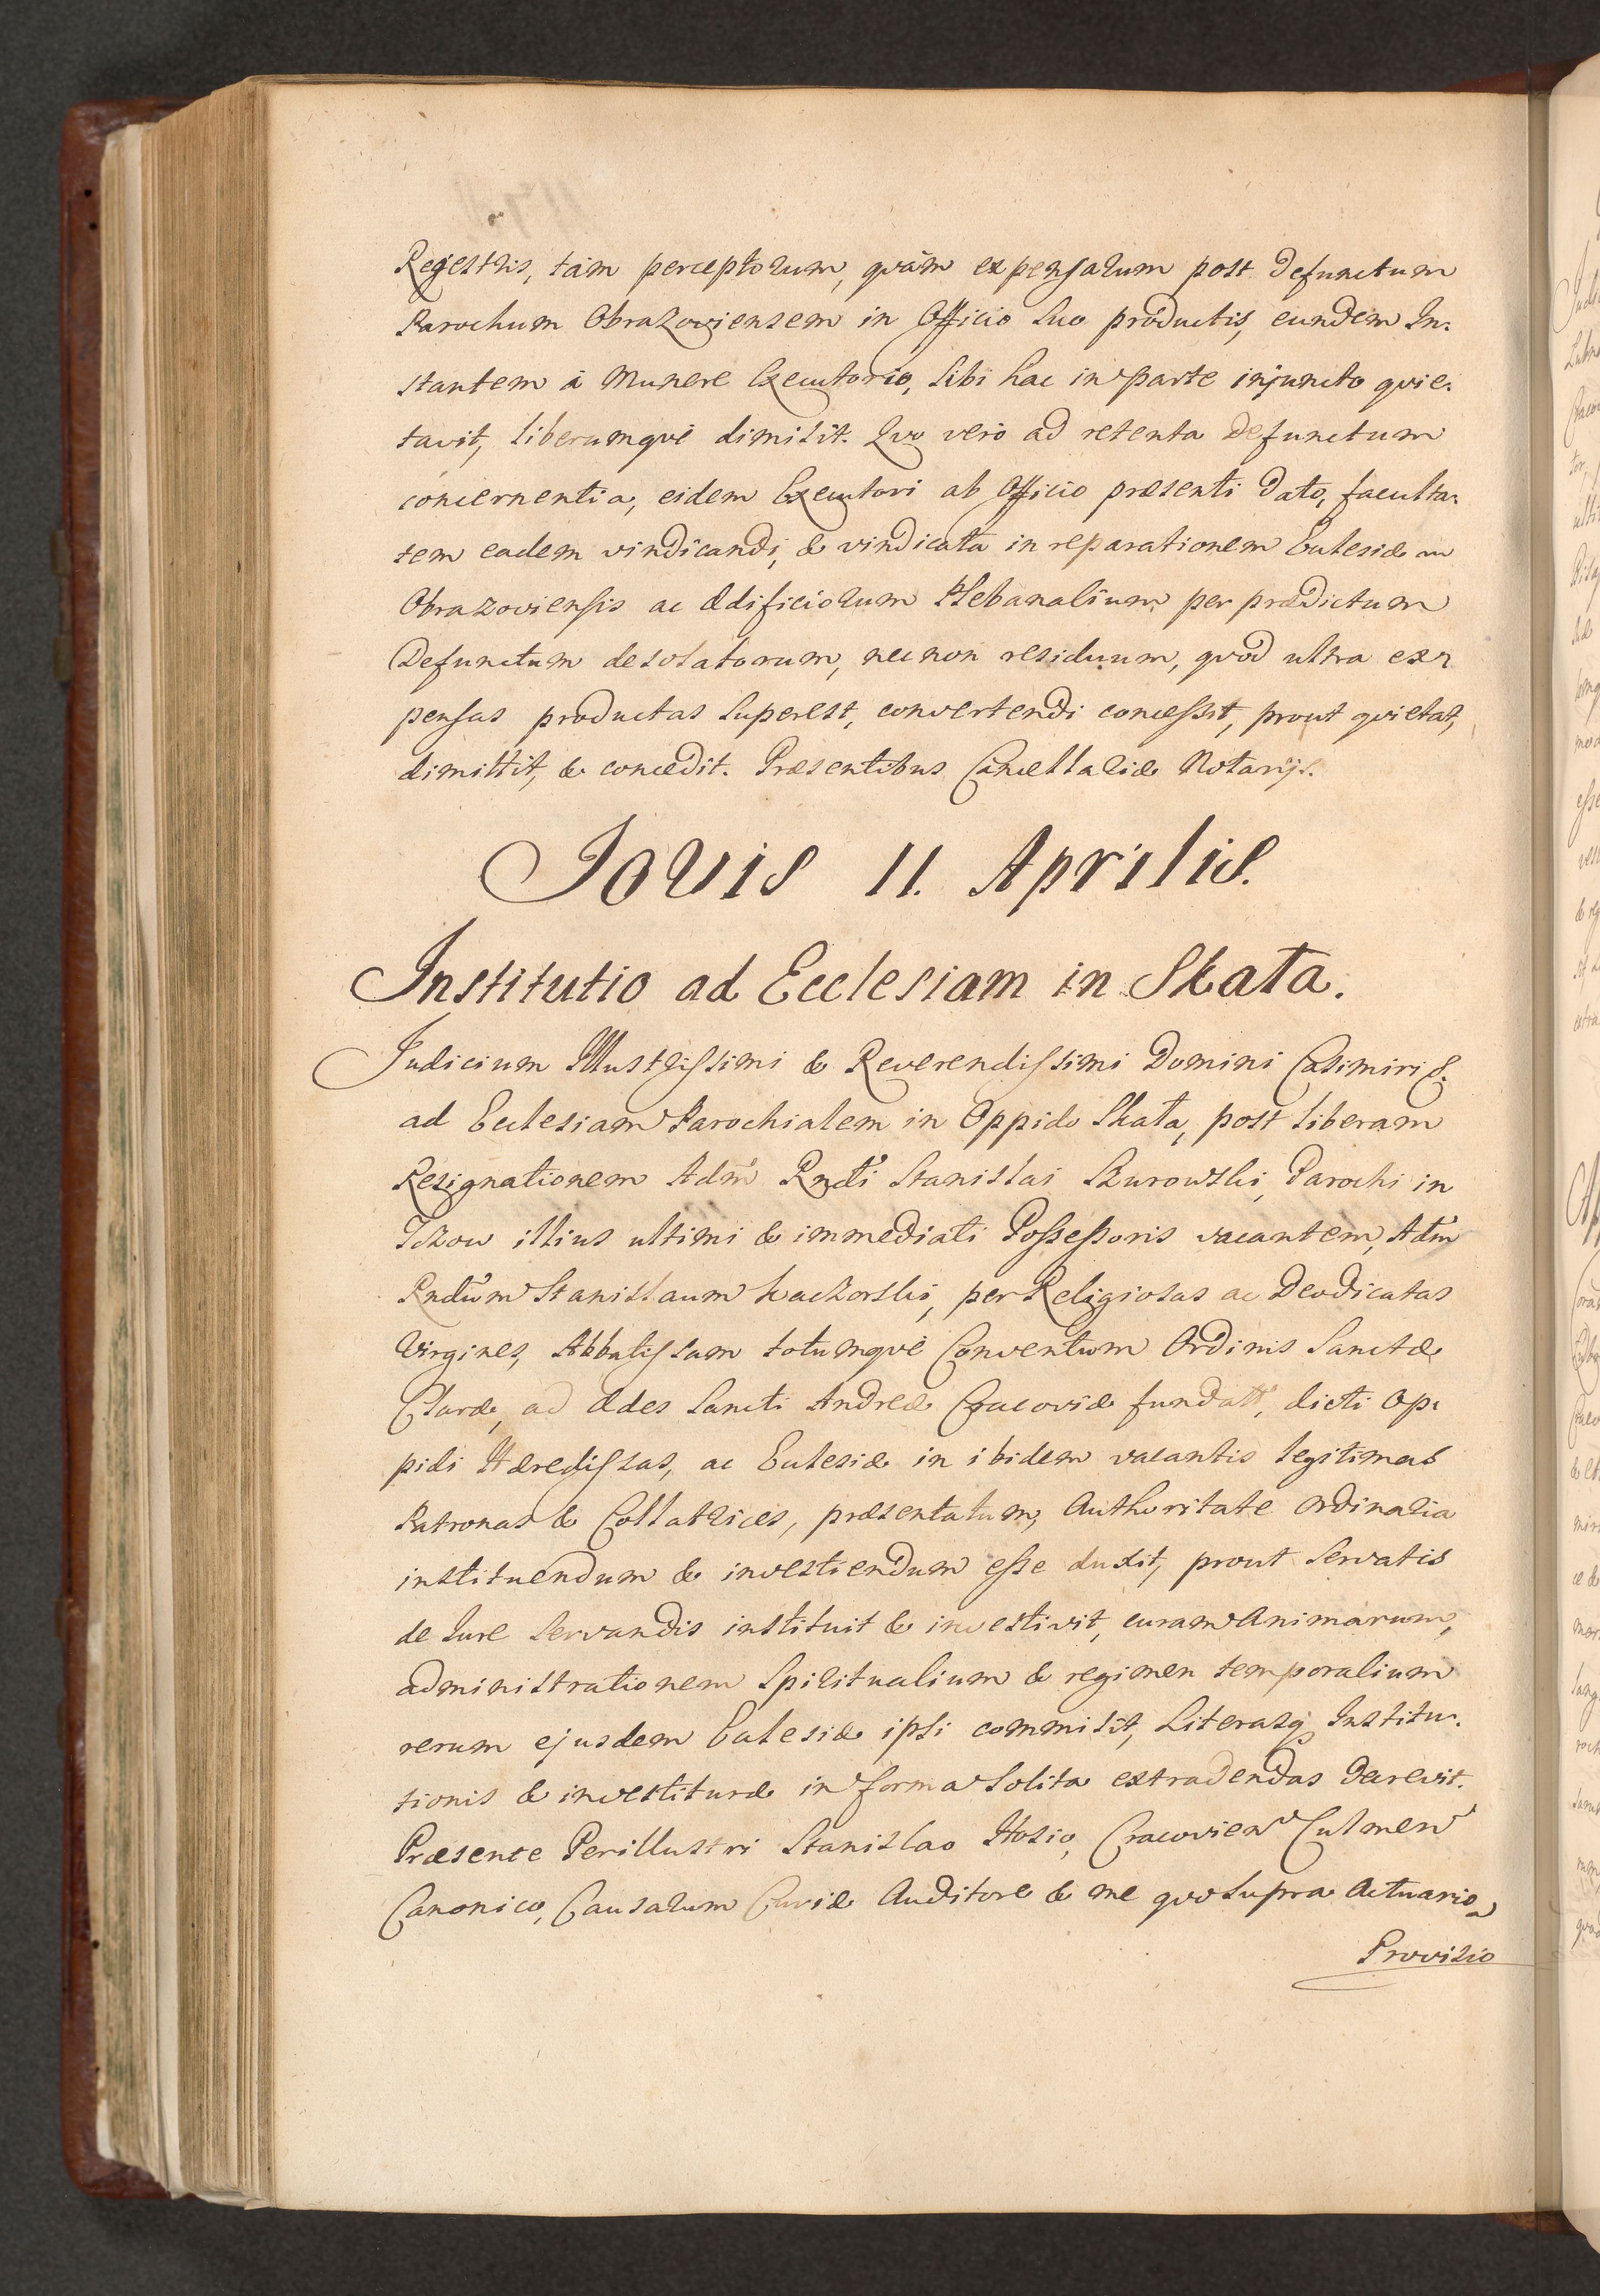 Regestris, tàm perceptorum, qvàm expensarum post Defunctum
Parochum Obrazoviensem in Officio suo productis, eundem In-
stantem à Munere Executorio, sibi hac in parte injuncto qvie-
tavit, liberumqvè dimisit. Qvo verò ad retenta Defunctum
concernentia, eidem Executori ab Officio præsenti dato, faculta-
tem eadem vindicandi, & vindicata in reparationem Ecclesiæ
Obrazoviensis ac Ædificiorum Plebanalium, per prædictum
Defunctum desolatorum, necnon residuum, qvod ultra ex-
pensas productas superest, convertendi concessit, prout qvietat,
dimittit, & concedit. Præsentibus Cancellariæ Notarijs.
Jovis 11. Aprilis.
Institutio ad Ecclesiam in Skała.
Judicium Illustrissimi & Reverendissimi Domini Casimiri &.
ad Ecclesiam Parochialem in Oppido Skała, post liberam
Resignationem Adm Rndi Stanislai Skurowski, Parochi in
illius ultimi & immediati Possessoris vacantem, Adm
Rndum Stanislaum per Religiosas ac Deodicatas
Virgines, Abbatissam totumqvè Conventum Ordinis Sanctæ
Claræ, ad Ædes Sancti Andreæ Cracoviæ fundatt, dicti Op-
pidi Hæredissas, ac Ecclesiæ in ibidem vacantis legitimas
Patronas & Collatrices, præsentatum, Authoritate Ordinaria
instituendum & investiendum esse duxit, prout servatis
de Jure servandis instituit & investivit, curam Animarum,
administrationem Spiritualium & regimen temporalium
rerum ejusdem Ecclesiæ ipsi commisit, Literasq Institu-
tionis & investituræ in forma solita extradendas decrevit.
Præsente Perillustri Stanislao Hosio, Cracovien Culmen
Canonico, Causarum Curiæ Auditore & me qvo supra Actuario
Provisio